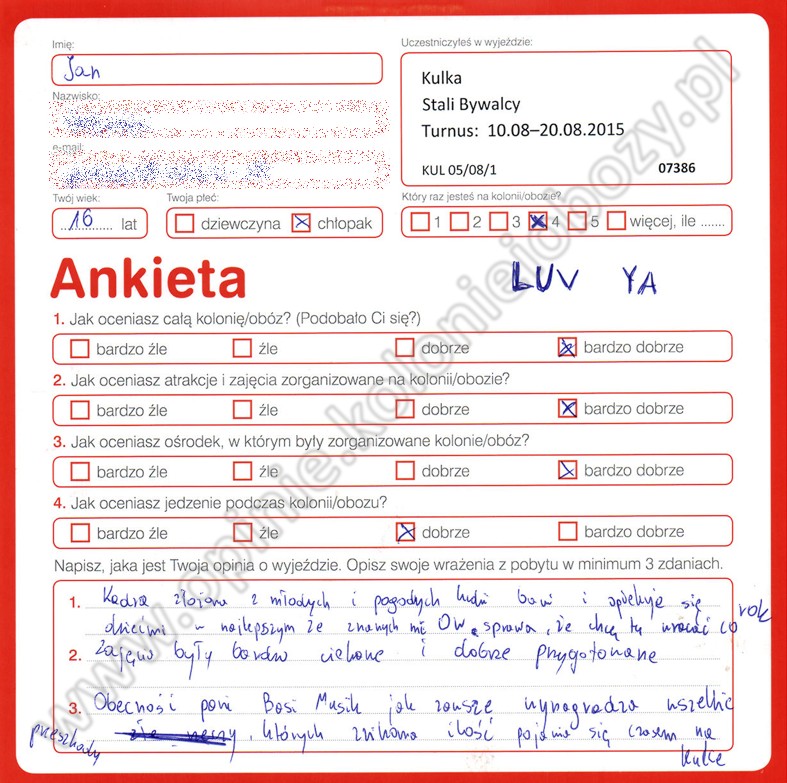 Imię:
Jan
Nazwisko:
e-mail:
Uczestniczyłeś w wyjeździe:
Kulka
Stali Bywalcy
Turnus: 10.08–20.08.2015
KUL 05/08/1 07386
Twój wiek:
16 lat
Twoja płeć:
dziewczyna chłopak
Który raz jesteś na kolonii/obozie?
1 2 3 4 5 więcej, ile .......
Ankieta
LUV YA
1. Jak oceniasz całą kolonię/obóz? (Podobało Ci się?)
bardzo źle źle dobrze bardzo dobrze
2. Jak oceniasz atrakcje i zajęcia zorganizowane na kolonii/obozie?
bardzo źle źle dobrze bardzo dobrze
3. Jak oceniasz ośrodek, w którym były zorganizowane kolonie/obóz?
bardzo źle źle dobrze bardzo dobrze
4. Jak oceniasz jedzenie podczas kolonii/obozu?
bardzo źle źle dobrze bardzo dobrze
Napisz, jaka jest Twoja opinia o wyjeździe. Opisz swoje wrażenia z pobytu w minimum 3 zdaniach.
1. Kadra złożona z młodych i pogodnych ludzi bawi i opiekuje się
dziećmi w najlepszym ze znanych mi sprawia, że chcę tu wracać co rok
2. Zajęcia były bardzo ciekawe i dobrze przygotowane
3. Obecność pani Basi Musik jak zawsze wynagradza wszelkie
przeszkody, których znikoma ilość pojawia się czasem na
Kulce
www.opinie.kolonieiobozy.pl